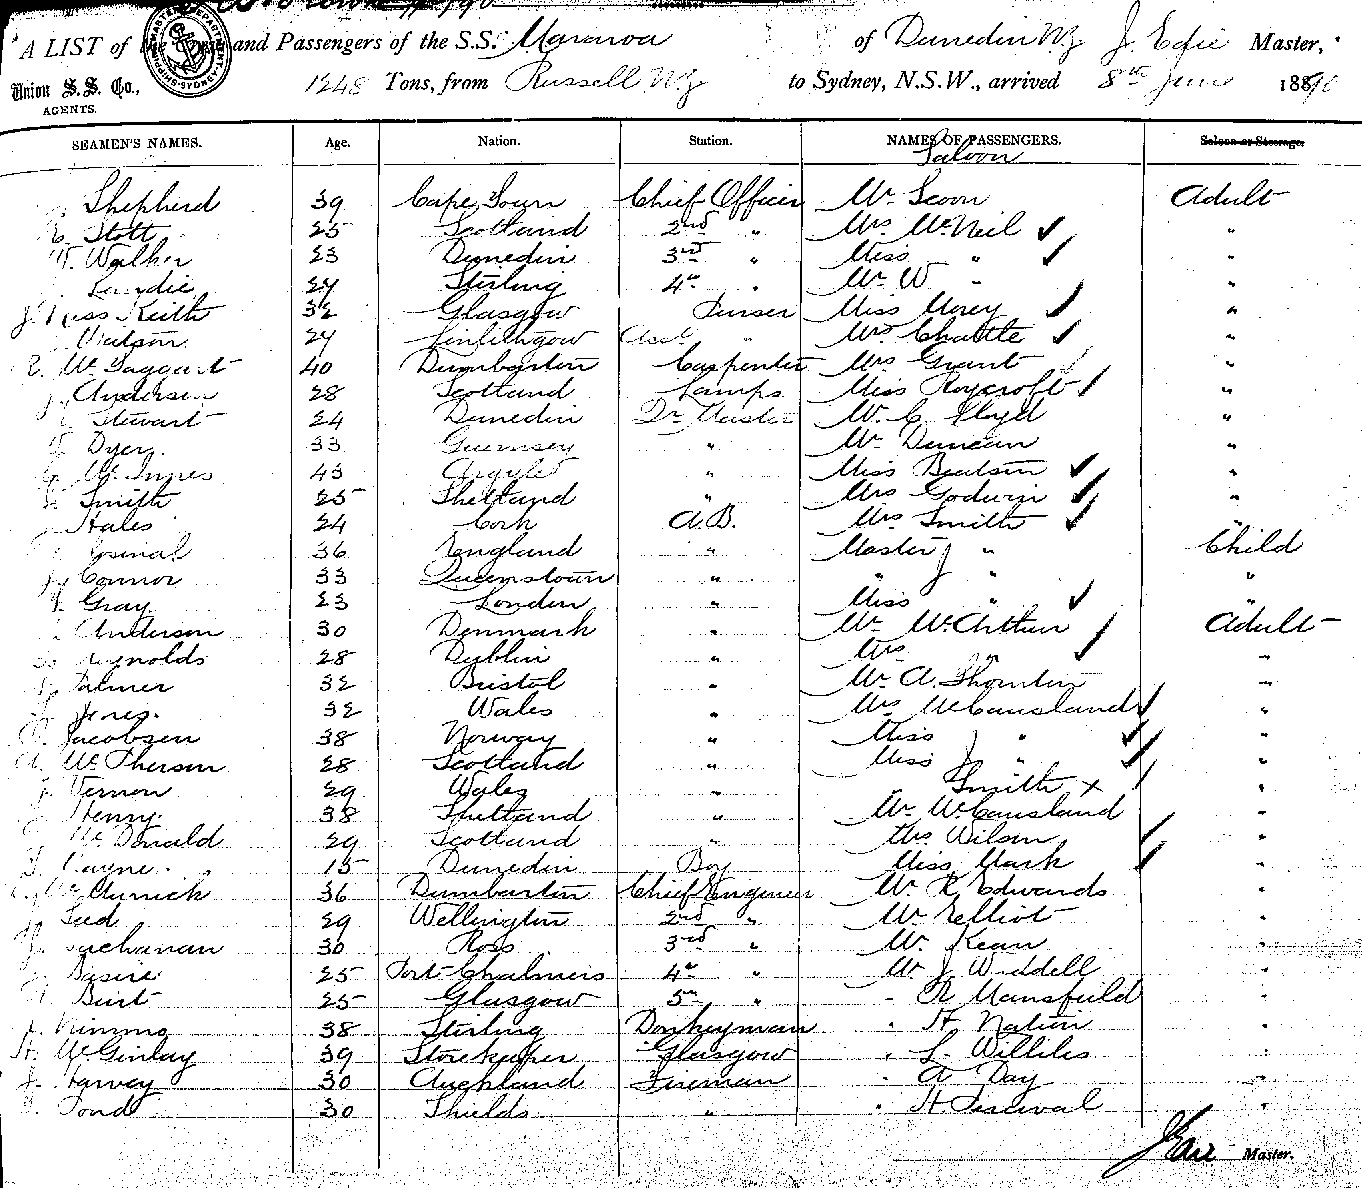 A LIST of the Crew and Passengers of the S.S. Mararoa of Dunedin NZ J. Edie Master,
Union S. S. Co., 1248 Tons, from Russell NZ to Sydney, N.S.W., arrived 8th June 1890
AGENTS.
SEAMEN'S NAMES. Age. Nation. Station. NAMES OF PASSENGERS. Saloon or Steerage.
Saloon
Shepherd 39 Cape Town Chief Officer Mr Scoon Adult
Stott 25 Scotland 2nd " Mrs McNeil ✓ "
Walker 23 Dunedin 3rd " Miss " ✓ "
24 Stirling 4th " Mr W " "
J. Ross Keith 32 Glasgow Purser Miss Morey ✓ "
Watson 24 Linlithgow Asst " Mrs Chattle ✓ "
McTaggart 40 Dumbarton Carpenter Mrs Grant ✓ "
Anderson 28 Scotland Lamps Miss Roycroft ✓ "
Stewart 24 Dunedin Qr Master Mr C. Lloyd "
Dyer 33 Guernsey " Mr Duncan "
McInnes 43 Argyle " Miss Beatson ✓ "
Smith 25 Shetland " Mrs Godwin ✓ "
Hales 24 Cork A.B. Mrs Smith ✓ "
36 England " Master " Child
Connor 33 Queenstown " " " "
Gray 23 London " Miss " ✓ "
Anderson 30 Denmark " Mr McArthur ✓ Adult
Reynolds 28 Dublin " Mrs " ✓ "
Palmer 32 Bristol " Mr A. Thornton "
Jones 32 Wales " Mrs McCausland ✓ "
Jacobsen 38 Norway " Miss " ✓ "
McPherson 28 Scotland " Miss " ✓ "
J. Vernon 29 Wales " " Smith x ✓ "
Henry 38 Shetland " Mr McCausland "
McDonald 29 Scotland " Mrs Wilson ✓ "
15 Dunedin Boy Miss Mark ✓ "
36 Dumbarton Chief Engineer Mr R. Edwards "
29 Wellington 2nd " Mr Elliot "
Buchanan 30 Ross 3rd " Mr Kean "
25 Port Chalmers 4th " Mr J Widdell "
Burt 25 Glasgow 5th " " R Mansfield "
Nimmo 38 Stirling Donkeyman " H Nation "
McGinlay 39 Storekeeper Glasgow " L. "
J. Harvey 30 Auckland Fireman " A Day "
Pond 30 Shields " " H Percival "
J Edie Master.